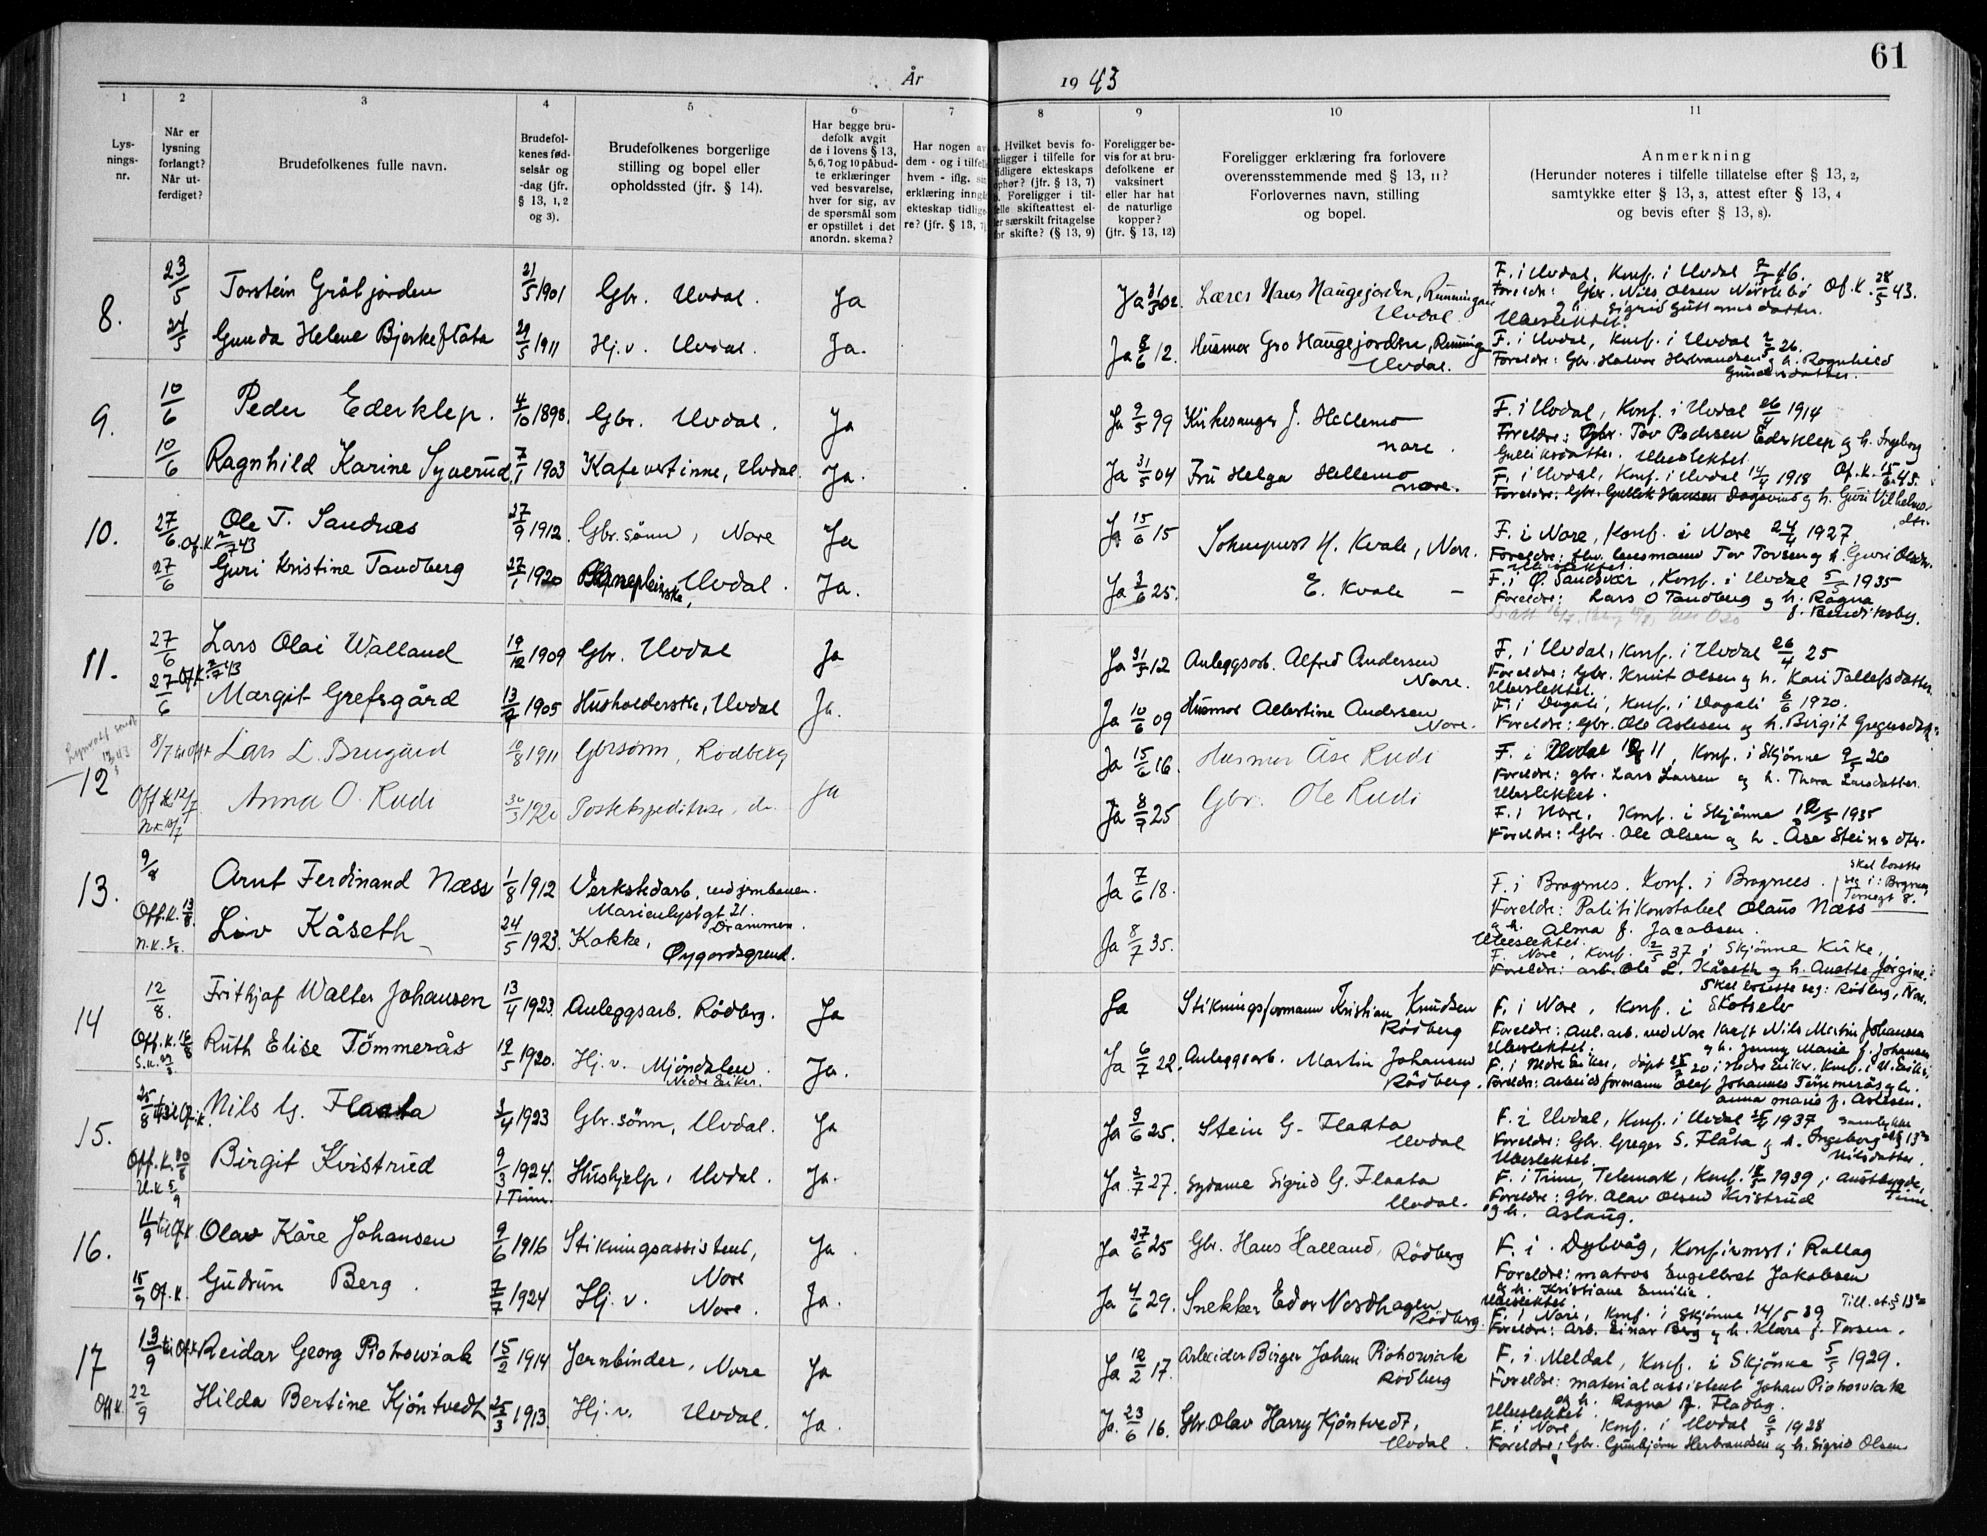 61
År 1943
1 2 3 4 5 6 7 8 9 10 11
Lysnings-
nr.
Når er
lysning
forlangt?
Når ut-
ferdiget?
Brudefolkenes fulle navn.
Brudefol-
kenes fød-
selsår og
-dag (jfr.
§ 13, 1, 2
og 3).
Brudefolkenes borgerlige
stilling og bopel eller
opholdssted (jfr. § 14).
Har begge bru-
defolk avgit
de i lovens § 13,
5, 6, 7 og 10 påbud-
te erklæringer
ved besvarelse,
hver for sig, av
de spørsmål som
er opstillet i det
anordn. skema?
Har nogen av
dem - og i tilfelle
hvem - iflg. sin
erklæring inngåt
ekteskap tidlige-
re? (jfr. § 13, 7)
a. Hvilket bevis fo-
religger i tilfelle for
tidligere ekteskaps
ophør? (jfr. § 13, 7)
b. Foreligger i til-
felle skifteattest el-
ler særskilt fritagelse
for skifte? (§ 13, 9)
Foreligger be-
vis for at bru-
defolkene er
vaksinert
eller har hat
de naturlige
kopper?
(jfr. § 13, 12)
Foreligger erklæring fra forlovere
overensstemmende med § 13, 11?
Forlovernes navn, stilling
og bopel.
Anmerkning
(Herunder noteres i tilfelle tillatelse efter § 13, 2,
samtykke efter § 13, 3, attest efter § 13, 4
og bevis efter § 13, 8).
8. 23/5 Torstein Gråtjorden 21/5 1901 Gbr. Uvdal. Ja Ja 31/7 02. Lærer Hans Haugejorden, Uvdal. F. i Uvdal, Konf. i Uvdal Of. k. 28/5 43.
Foreldre: Gbr. Nils Olsen og Sigrid
Ubeslektet.
24/5 Gunda Helene Bjerkeflåta 29/5 1911 Hj.v. Uvdal. Ja. Ja 8/6 12. Husmor Gro Haugejorden, Uvdal. F. i Uvdal, Konf. i Uvdal 26.
Foreldre: Gbr. Halvor Herbrandsen og h. Ragnhild
9. 10/6 Peder Ederklep. 4/10 1898. Gbr. Uvdal. Ja Ja 9/5 99 Kirkesanger J. Hellemo Nore. F. i Uvdal, Konf. i Uvdal 26/4 1914
Foreldre: Gbr. Tov Pedersen Ederklep og h. Ingeborg
Gulliksdatter. Ubeslektet.
10/6 Ragnhild Karine Syverud 7/1 1903 Kafevertinne, Uvdal. Ja. Ja 31/5 04 Fru Helga Hellemo Nore. F. i Uvdal, Konf. i Uvdal 1918 Of. k. 15/6 43.
Foreldre: Gbr. Gullik Hansen og h. Guri Vilhelms-
dtr.
10. 27/6 Of. k 2/7 43 Ole T. Sandnes 27/9 1912. Gbr. sønn, Nore Ja Ja 15/6 15 H. Kvale, Nore. F. i Nore, Konf. i Nore 24/4 1927.
Foreldre: fhv. lensmann Tov Tovsen og h. Guri Olsdtr.
Ubeslektet.
27/6 Guri Kristine Tandberg 27/1 1920 Uvdal. Ja. Ja 3/6 25. E. Kvale — F. i Ø. Sandsvær, Konf. i Uvdal 5/5 1935
Foreldre: Lars O Tandberg og h. Ragna
f. Bendiksby.
11. 27/6 Of. k. 2/7 43 Lars Olai Walland 19/12 1909 Gbr. Uvdal Ja Ja 31/5 12 Anleggsarb. Alfred Andersen Nore. F. i Uvdal, Konf. i Uvdal 26/4 25
Foreldre: Gbr. Knut Olsen og h. Kari Tollefsdatter.
Ubeslektet.
27/6 Margit Grefsgård 13/7 1905 Husholderske, Uvdal Ja. Ja 10/6 09 Husmor Albertine Andersen Nore. F. i Dagali, Konf. i Dagali 6/6 1920.
Foreldre: Gbr. Ole Aslesen og h. Birgit
12 8/7 Lars L. Brugård 10/8 1911 Gbrsønn, Rødberg Ja Ja 15/6 16. Husmor Åse Rudi F. i Uvdal, Konf. i Skjønne 9/5 26
Foreldre: gbr. Lars Larsen og h. Thora Larsdatter.
Ubeslektet.
Off. k. 12/7 Anna O. Rudi 30/3 1920 do. Ja 8/7 25 Gbr. Ole Rudi F. i Nore, Konf. i Skjønne 1935
Foreldre: Gbr. Ole Olsen og h. Åse Steinsdtr.
13. 9/8 Arnt Ferdinand Næss 1/8 1912 Verkstedarb. ved jernbanen. Marienlystgt 21. Drammen. Ja 7/6 18. F. i Bragernes. Konf. i Bragernes. skal bosette seg i: Tornegt 8.
Foreldre: Politikonstabel Olaus Næss
og h. Alma f. Jacobsen.
Ubeslektet.
Off. k. 13/8 Liv Kåseth 24/5 1923. Kokke, Øygardsgrend. Ja 8/7 35. F. Nore, Konf. 2/5 37 i Skjønne Kirke,
Foreldre: arb. Ole L. Kåseth og h. Anette Jørgine.
Skal bosette seg: Rødberg, Nore.
14 12/8. Frithjof Walter Johansen 13/4 1923. Anleggsarb. Rødberg. Ja Ja Stikningsformann Kristian Knudsen Rødberg F. i Nore, Konf. i Skotselv
Foreldre: Anl. arb. ved Nore kraft Nils Martin Johansen
Ubeslektet. og h. Jenny Marie f. Johansen
Off. k. 16/8 Ruth Elise Tömmerås 12/5 1920. Hj. v. Mjöndalen Nedre Eiker. Ja. Ja 6/7 22. Anleggsarb. Martin Johansen Rødberg. F. i Nedre Eiker, døpt 25/7 20 i Nedre Eiker. Konf. i N. Eiker
Foreldre: Arbeidsformann Olaf Johannes Tömmerås og h.
Anna Marie f. Aslesen.
15. 25/8 Nils G. Flaata 3/4 1923 Gbr. sønn, Uvdal. Ja Ja 9/6 25. Stein G. Flaata Uvdal F. i Uvdal, Konf. i Uvdal 1937 Samtykke
Foreldre: Gbr. Greger S. Flåta og h. Ingeborg Nilsdatter.
Ubeslektet.
Off. k. 30/8 Birgit Kvistrud 9/3 1924. i Tinn. Hushjelp, Uvdal. Ja. Ja 2/7 27. Sydame Sigrid G. Flaata Uvdal. F. i Tinn, Telemark, Konf. 1939, i Austbygde, Tinn.
Foreldre: Gbr. Olav Olsen Kvistrud
og h. Aslaug.
16. 11/9 Olav Kåre Johansen 9/6 1916 Stikningsassistent, Nore Ja. Ja 27/6 25 Gbr. Hans Halland, Rødberg F. i. Dybvåg, Konfirmert i Rollag
Foreldre: matros Engelbret Jakobsen
og h. Kristiane Emilie.
Ubeslektet.
15/9 Of. k. Gudrun Berg. 7/7 1924 Hj. v. Nore. Ja. Ja 4/6 29. Snekker Edor Nordhagen Rødberg. F. i Nore, Konf. i Skjønne 14/5 39
Foreldre: Arb. Einar Berg og h. Klara f. Torsen.
17 13/9 Reidar Georg Piotrowiak 15/2 1914 Jernbinder, Nore Ja Ja 12/2 17. Arbeider Birger Johan Piotrowiak Rødberg F. i. Meldal, Konf. i Skjønne 5/5 1929.
Foreldre: materialassistent Johan Piotrowiak
og h. Ragna f. Fladby.
Ubeslektet.
Off k. 22/9 Hilda Bertine Kjöntvedt 25/3 1913. Hj. v. Uvdal. Ja. Ja. 23/6 16. Gbr. Olav Harry Kjöntvedt, Uvdal. F. i Nore Konf. i Uvdal 6/5 1928
Foreldre: Gbr. Gunbjørn Herbrandsen og h. Sigrid Olsen